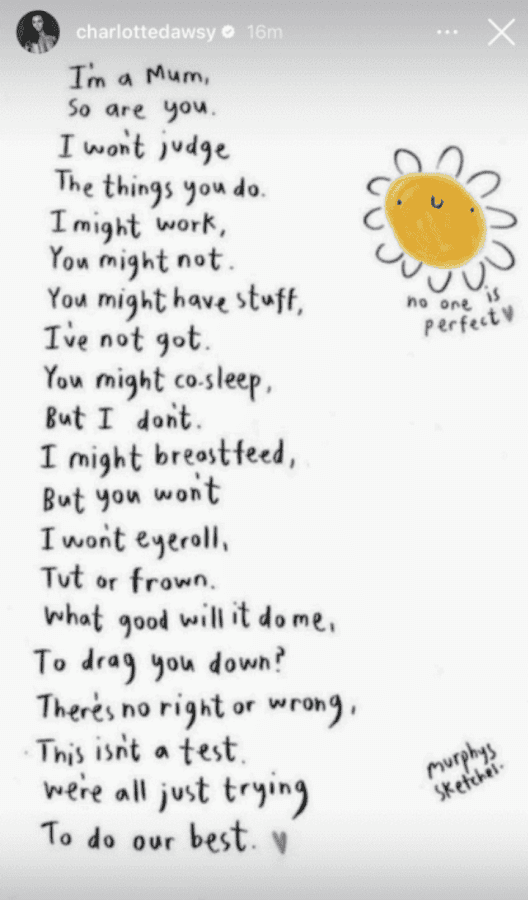 charlottedawsy 16m
I'm a Mum,
So are you.
I won't judge
The things you do.
I might work,
You might not.
You might have stuff,
I've not got.
You might co-sleep,
But I don't.
I might breastfeed,
But you won't
I won't eyeroll,
Tut or frown.
What good will it do me,
To drag you down?
There's no right or wrong,
This isn't a test.
We're all just trying
To do our best.
no one is
perfect
murphys
sketches.